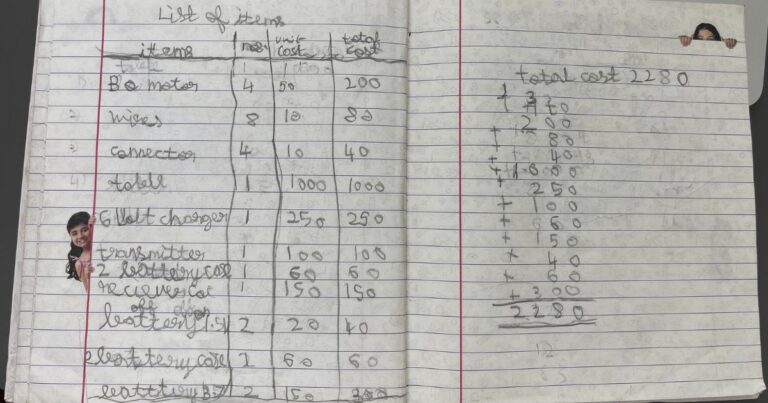 List of items
items nos. unit cost total cost
Bo motor 4 50 200
wires 8 10 80
connector 4 10 40
1 1000 1000
6 volt charger 1 250 250
transmitter 1 100 100
2 battery case 1 60 60
reciever 1 150 150
battery 1.5 2 20 40
2 battery case 1 60 60
batttery 3.7 2 150 300
total cost 2280
200
+ 80
+ 40
+ 1000
+ 250
+ 100
+ 60
+ 150
+ 40
+ 60
+ 300
2280